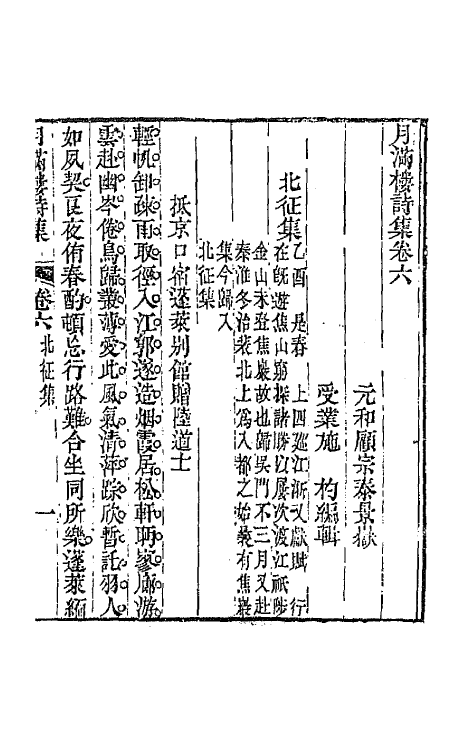 月滿樓詩集卷六
元和顧宗泰景嶽
受業施杓編輯
北征集
乙酉 是春 上四廵江浙又獻賦 行
在旣遊焦山窮探諸勝以屢次渡江祇陟
金山未登焦巖故也歸吳門不三月又赴
秦淮冬治裝北上爲入都之始㪅有焦巖
集今歸入
北征集
抵京口宿蓬萊别館贈陸道士
輕帆卸疎雨取徑入江郭遂造烟霞居松軒聘寥廓游
雲赴幽岑倦鳥歸叢薄愛此風氣清萍踪欣暫託羽人
如夙契良夜侑春酌頓忘行路難合坐同所樂蓬萊緬
月滿樓詩集 卷六 北征集 一